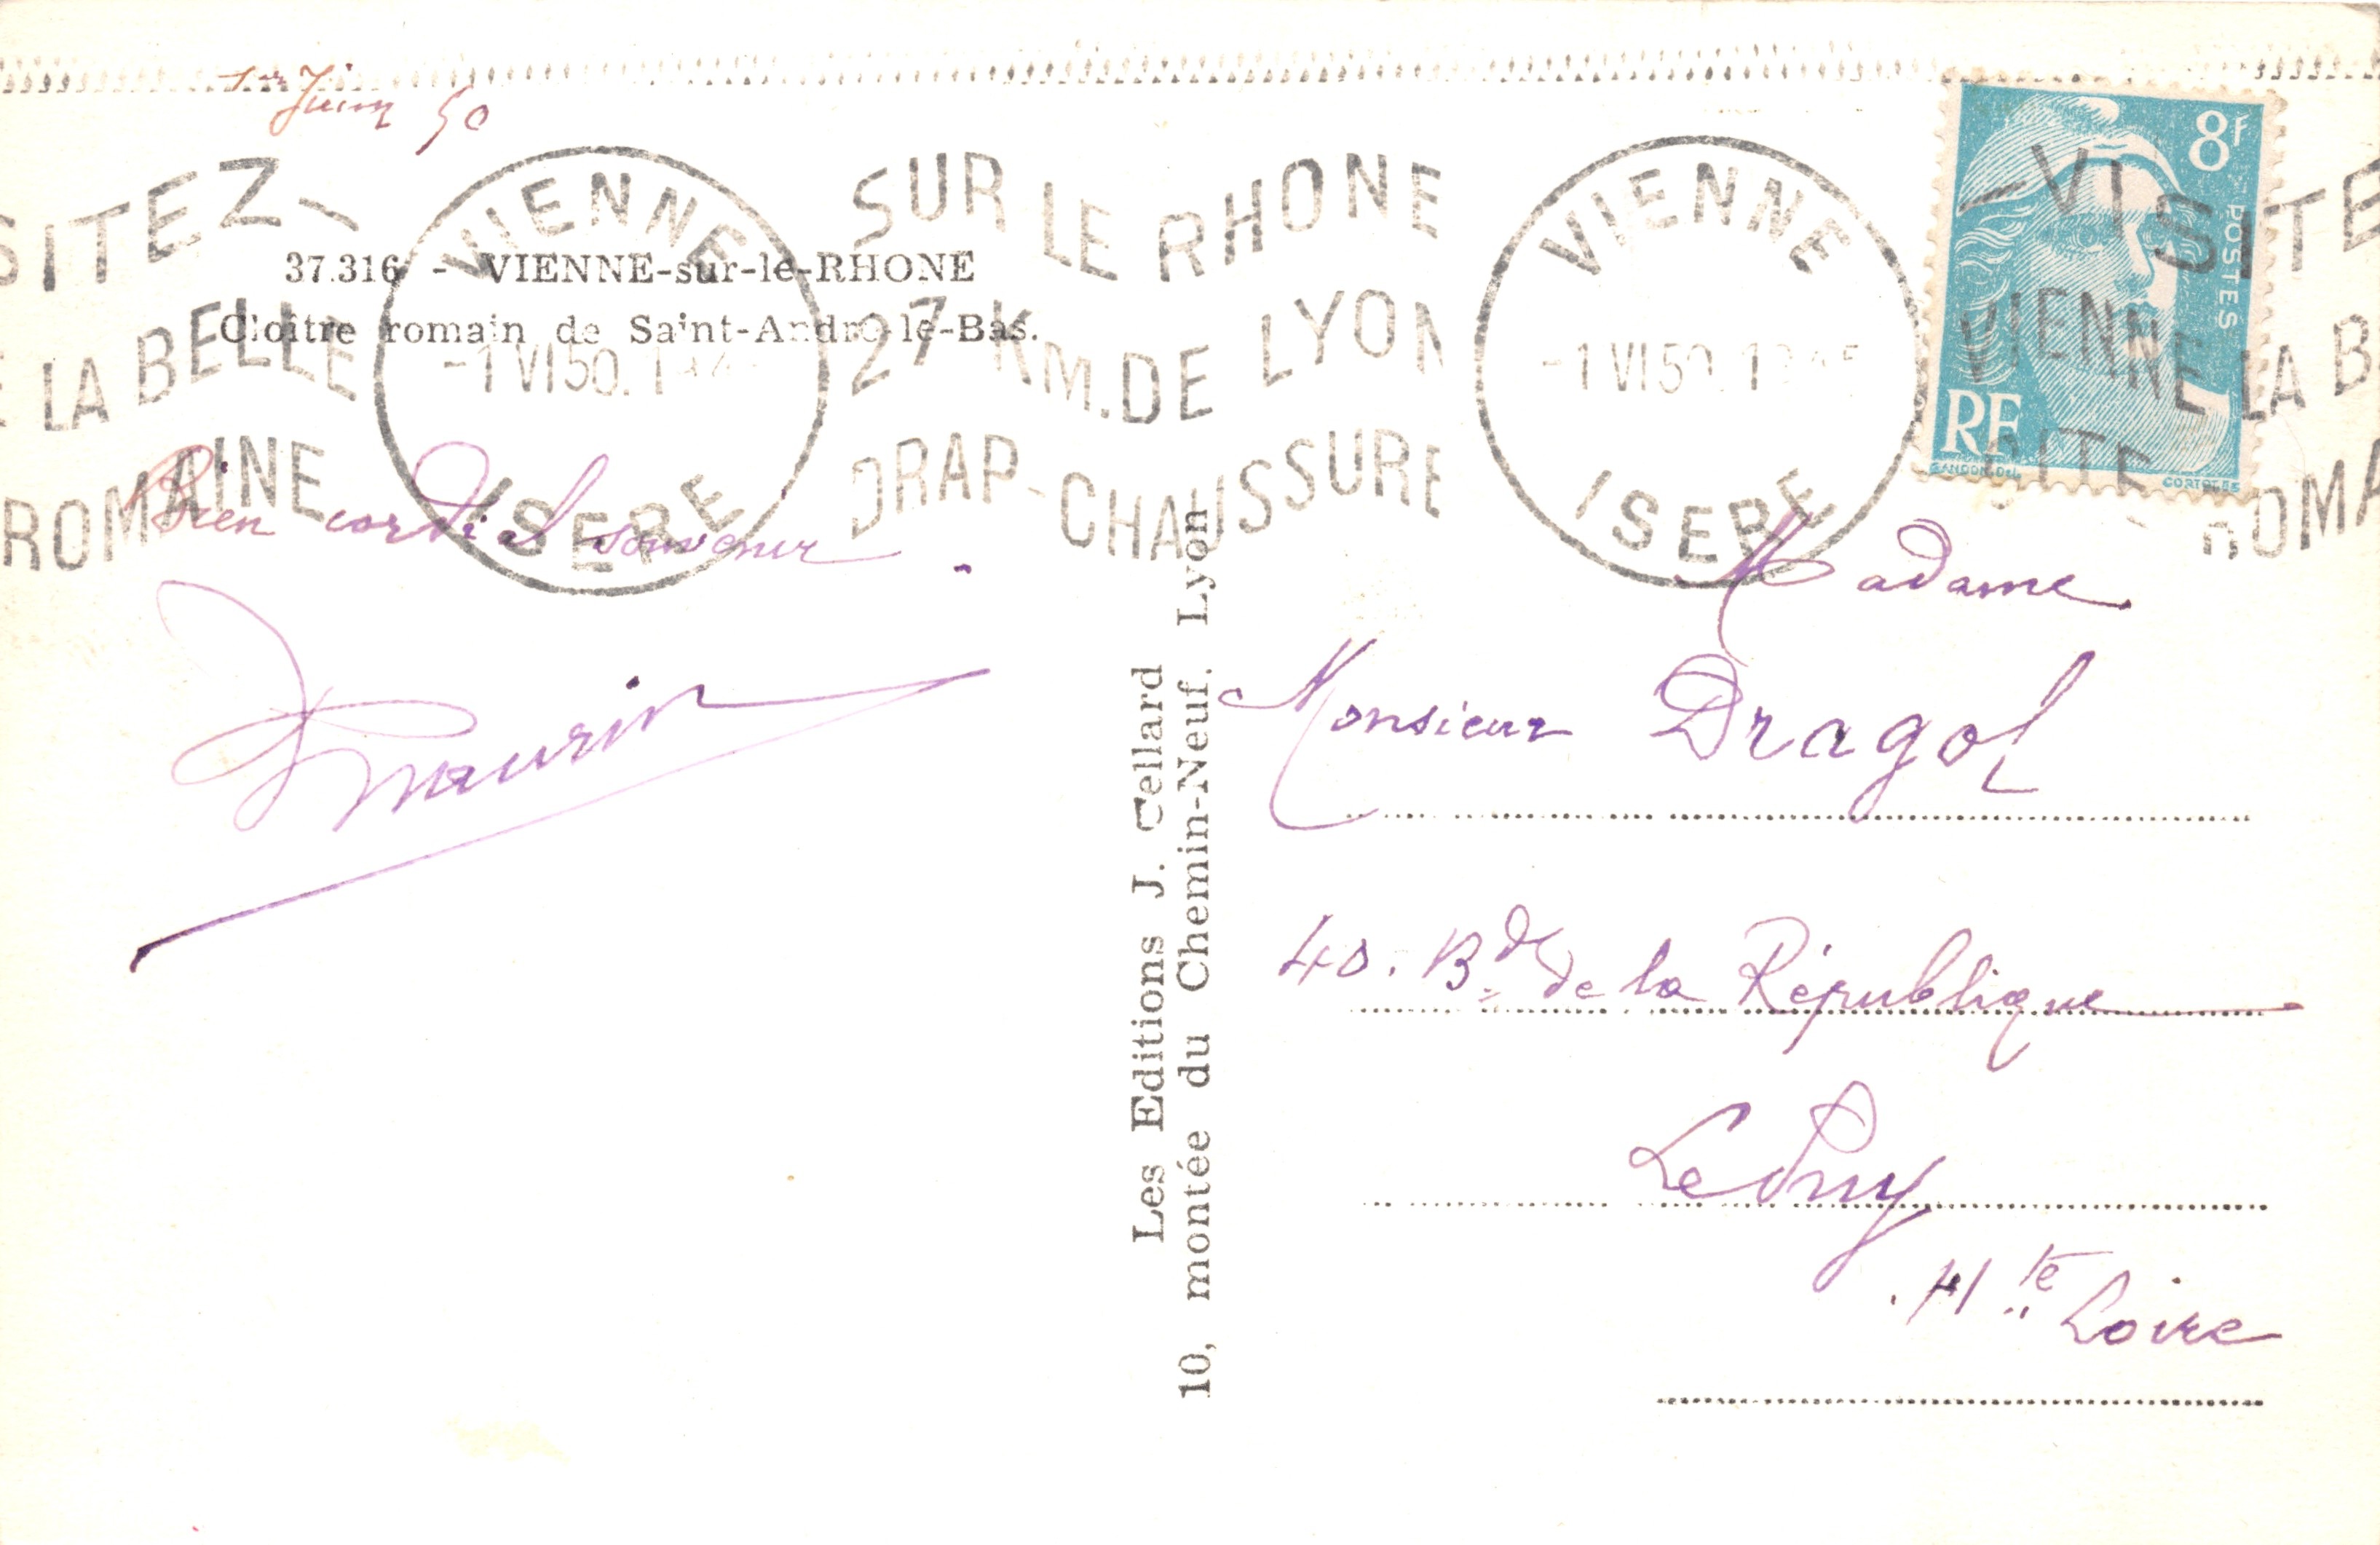 1er Juin 50
SITEZ-
LA BELLE
ROMAINE
VIENNE
-1 VI 50.
ISERE
SUR LE RHONE
27 KM. DE LYON
DRAP-CHAUSSURE
VIENNE
-1 VI 50
ISERE
-VISITE
VIENNE LA B
SITE ROMA
8F
POSTES
RF
GANDON DEL
CORTOT SC
37.316 - VIENNE-sur-le-RHONE
Cloître romain de Saint-André-le-Bas.
Bien cordial souvenir.
Maurin
Les Editions J. Cellard
10, montée du Chemin-Neuf. Lyon
Madame
Monsieur Dragol
40. Bd de la République
Le Puy
Hte Loire